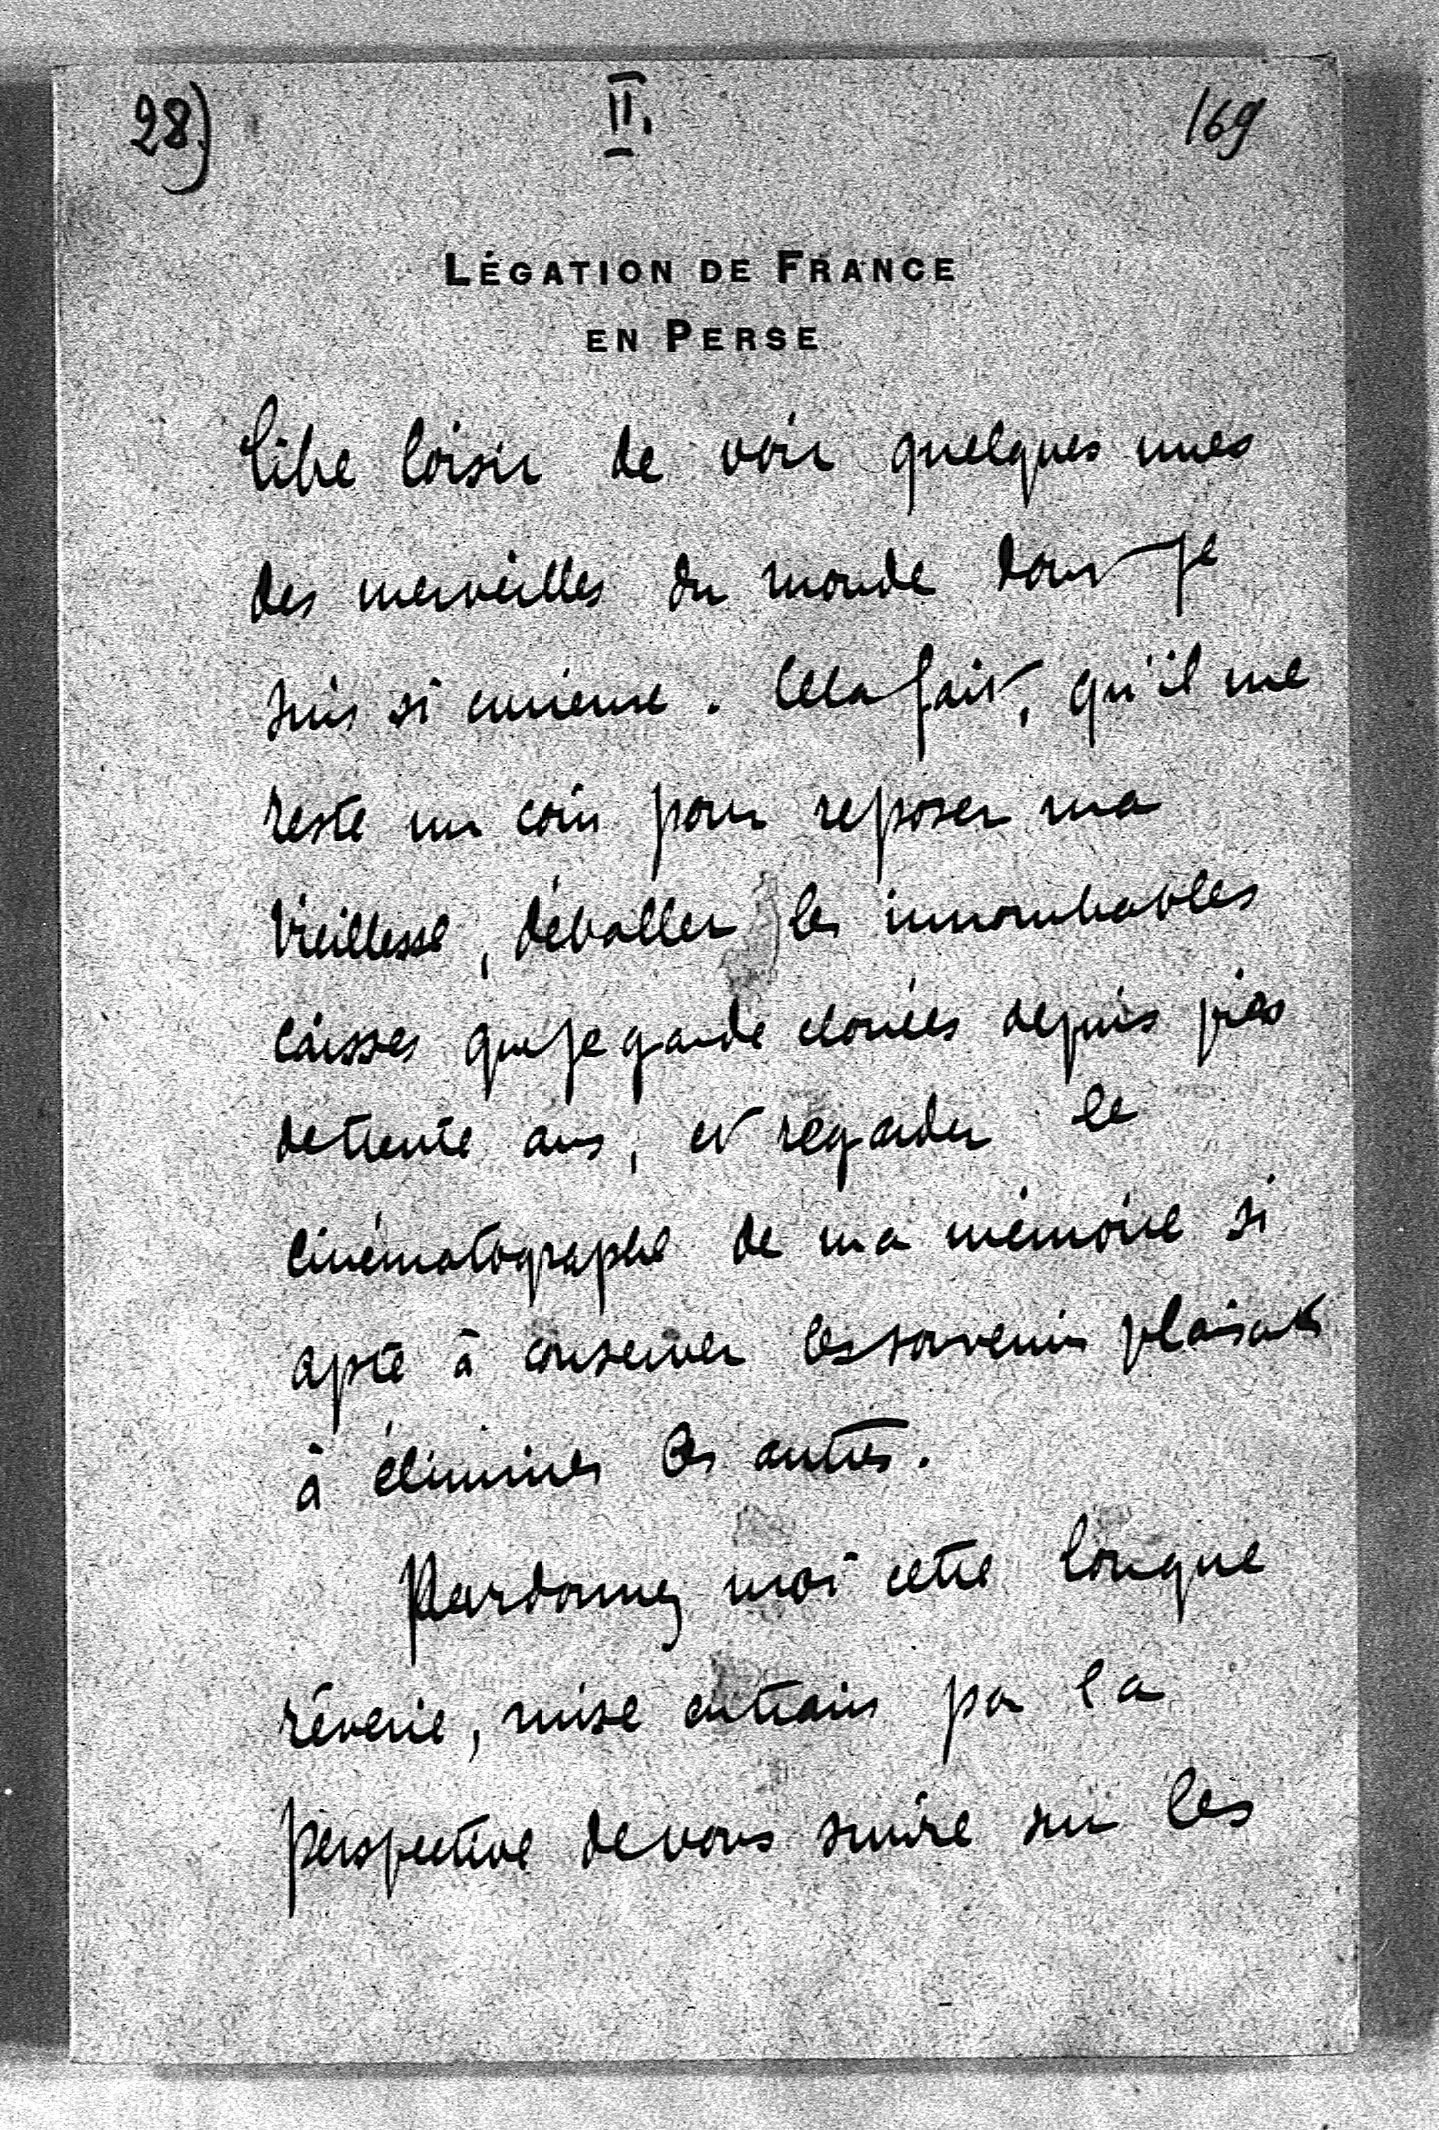 28)
II.
169
LÉGATION DE FRANCE
EN PERSE
libre loisir de voir quelques unes
des merveilles du monde dont je
suis si curieuse. Cela fait, qu'il me
reste un coin pour reposer ma
vieillesse, déballer les innombrables
caisses que je garde clouées depuis près
de trente ans, et regarder le
cinématographe de ma mémoire si
apte à conserver les souvenirs plaisants
à éliminer les autres.
Pardonnez moi cette longue
rêverie, mise en train par la
perspective de vous suivre sur les